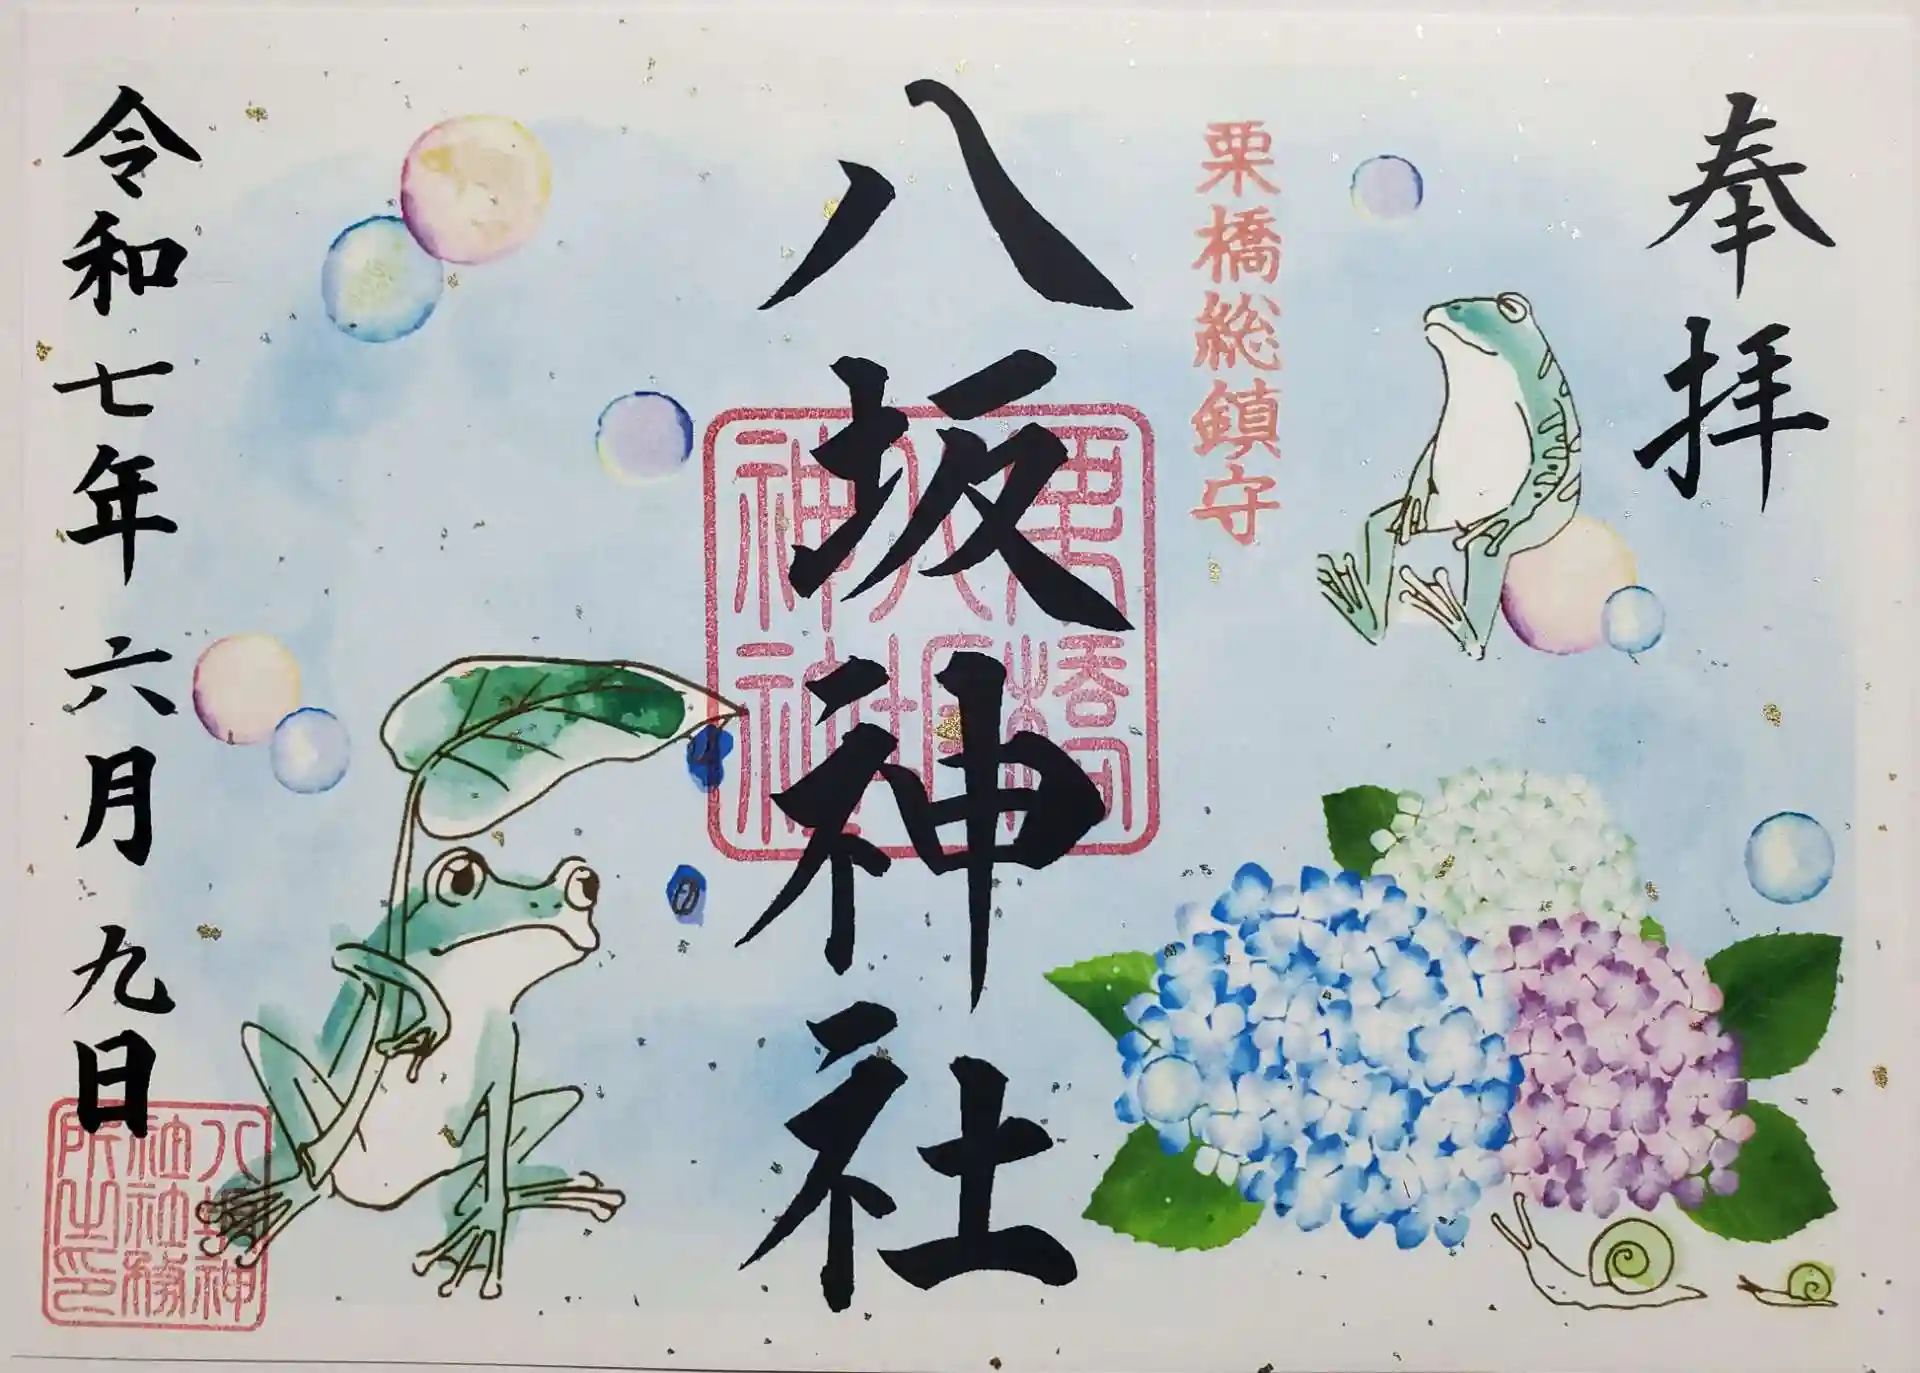 奉拝
栗橋總鎮守
八坂神社
栗橋
八坂
神社
令和七年六月九日
八坂神
社社務
所之印